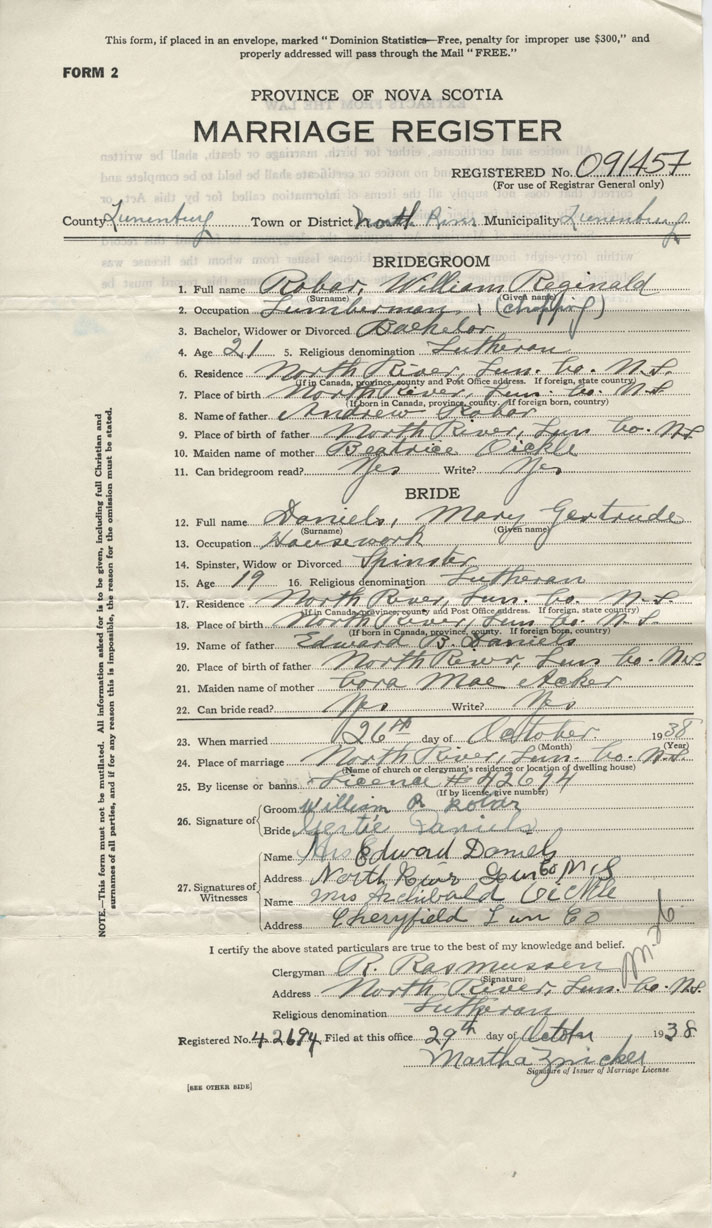 This form, if placed in an envelope, marked "Dominion Statistics—Free, penalty for improper use $300," and
properly addressed will pass through the Mail "FREE."
FORM 2
PROVINCE OF NOVA SCOTIA
MARRIAGE REGISTER
REGISTERED No. 091457
(For use of Registrar General only)
County Lunenburg Town or District North River Municipality Lunenburg
BRIDEGROOM
1. Full name Robar, William Reginald
(Surname) (Given name)
2. Occupation Lumberman (chopping)
3. Bachelor, Widower or Divorced Bachelor
4. Age 21 5. Religious denomination Lutheran
6. Residence North River, Lun. Co. N.S.
(If in Canada, province, county and Post Office address. If foreign, state country)
7. Place of birth North River, Lun. Co. N.S
(If born in Canada, province, county. If foreign born, country)
8. Name of father Andrew Robar
9. Place of birth of father North River, Lun Co. N.S
10. Maiden name of mother Beatrice Oickle
11. Can bridegroom read? Yes Write? Yes
BRIDE
12. Full name Daniels, Mary Gertrude
(Surname) (Given name)
13. Occupation Housework
14. Spinster, Widow or Divorced Spinster
15. Age 19 16. Religious denomination Lutheran
17. Residence North River, Lun. Co. N.S.
(If in Canada, province, county and Post Office address. If foreign, state country)
18. Place of birth North River, Lun Co. N.S
(If born in Canada, province, county. If foreign born, country)
19. Name of father Edward B. Daniels
20. Place of birth of father North River, Lun Co. N.S
21. Maiden name of mother Cora Mae Acker
22. Can bride read? Yes Write? Yes
23. When married 26th day of October 1938
(Month) (Year)
24. Place of marriage North River, Lun. Co. N.S.
(Name of church or clergyman's residence or location of dwelling house)
25. By license or banns License # 42694
(If by license, give number)
26. Signature of
Groom William R Robar
Bride Gertie Daniels
27. Signatures of Witnesses
Name Mrs Edward Daniels
Address North River Lun Co N S
Name Mrs Archibald Oickle
Address Cherryfield Lun Co
I certify the above stated particulars are true to the best of my knowledge and belief.
Clergyman R. Rasmussen
(Signature)
Address North River, Lun. Co. N.S.
Religious denomination Lutheran
Registered No. 42694 Filed at this office 29th day of October 1938
Martha Zwicker
Signature of Issuer of Marriage License
[SEE OTHER SIDE]
NOTE.—This form must not be mutilated. All information asked for is to be given, including full Christian and
surnames of all parties, and if for any reason this is impossible, the reason for the omission must be stated.